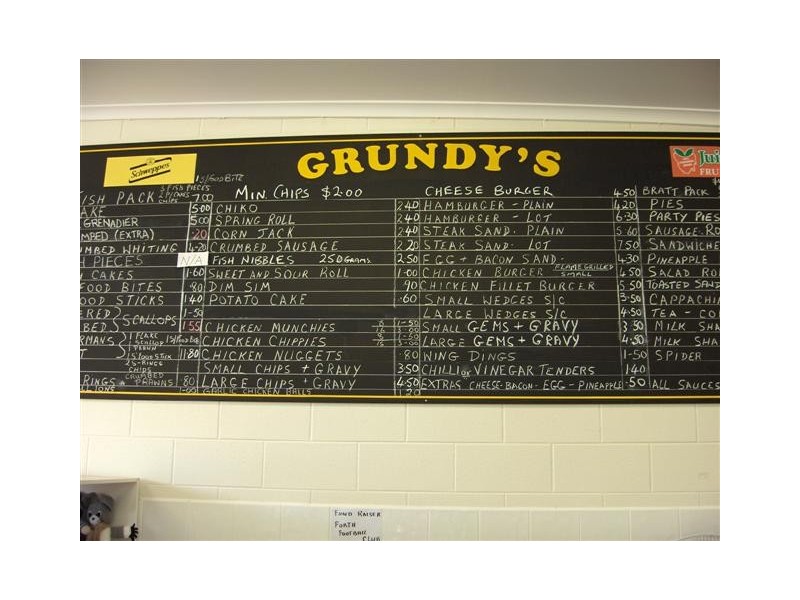 GRUNDY'S
Schweppes
Juic
FRU
15/FOOD BITE
ISH PACK 3 FISH PIECES 7.00
CHIPS
AKE 5.00
GRENADIER 5.00
MBED (EXTRA) .20
MBED WHITING 4.20
H PIECES N/A
CAKES 1.60
FOOD BITES .80
OOD STICKS 1.40
ERED 1-50
BED SCALLOPS 1.55
RMANS 1 FLAKE SCALLOP PRAWN
T 1 S/FOOD STICK 11.80
2 S-RINGS
CHIPS
CRUMBED
RINGS PRAWNS .80
MIN. CHIPS $2.00
CHIKO 2.40
SPRING ROLL 2.40
CORN JACK 2.40
CRUMBED SAUSAGE 2.20
FISH NIBBLES 250 GRAMS. 2.50
SWEET AND SOUR ROLL 1.00
DIM SIM .90
POTATO CAKE .60
CHICKEN MUNCHIES
CHICKEN CHIPPIES
CHICKEN NUGGETS .80
SMALL CHIPS + GRAVY 3.50
LARGE CHIPS + GRAVY 4.50
GARLIC CHICKEN BALLS 1.20
CHEESE BURGER 4.50
HAMBURGER - PLAIN 4.20
HAMBURGER - LOT 6.30
STEAK SAND. PLAIN 5.60
STEAK SAND. LOT 7.50
EGG + BACON SAND. 4.30
CHICKEN BURGER FLAME GRILLED SMALL 4.50
CHICKEN FILLET BURGER 5.50
SMALL WEDGES S/C 3.50
LARGE WEDGES S/C 4.50
SMALL GEMS + GRAVY 3.50
LARGE GEMS + GRAVY 4.50
WING DINGS 1-50
CHILLI OR VINEGAR TENDERS 1.40
EXTRAS CHEESE - BACON - EGG - PINEAPPLE .50
BRATT PACK
PIES
PARTY PIES
SAUSAGE RO
SANDWICHE
PINEAPPLE
SALAD ROL
TOASTED SAND
CAPPACHIN
TEA - CO
MILK SHA
MILK SHA
SPIDER
ALL SAUCES
FUND RAISER
FORTH
FOOTBALL
CLUB